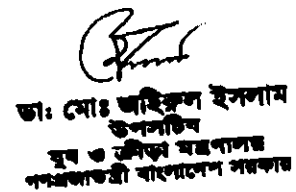 ডাঃ মোঃ জহিরুল ইসলাম
উপসচিব
যুব ও ক্রীড়া মন্ত্রণালয়
গণপ্রজাতন্ত্রী বাংলাদেশ সরকার